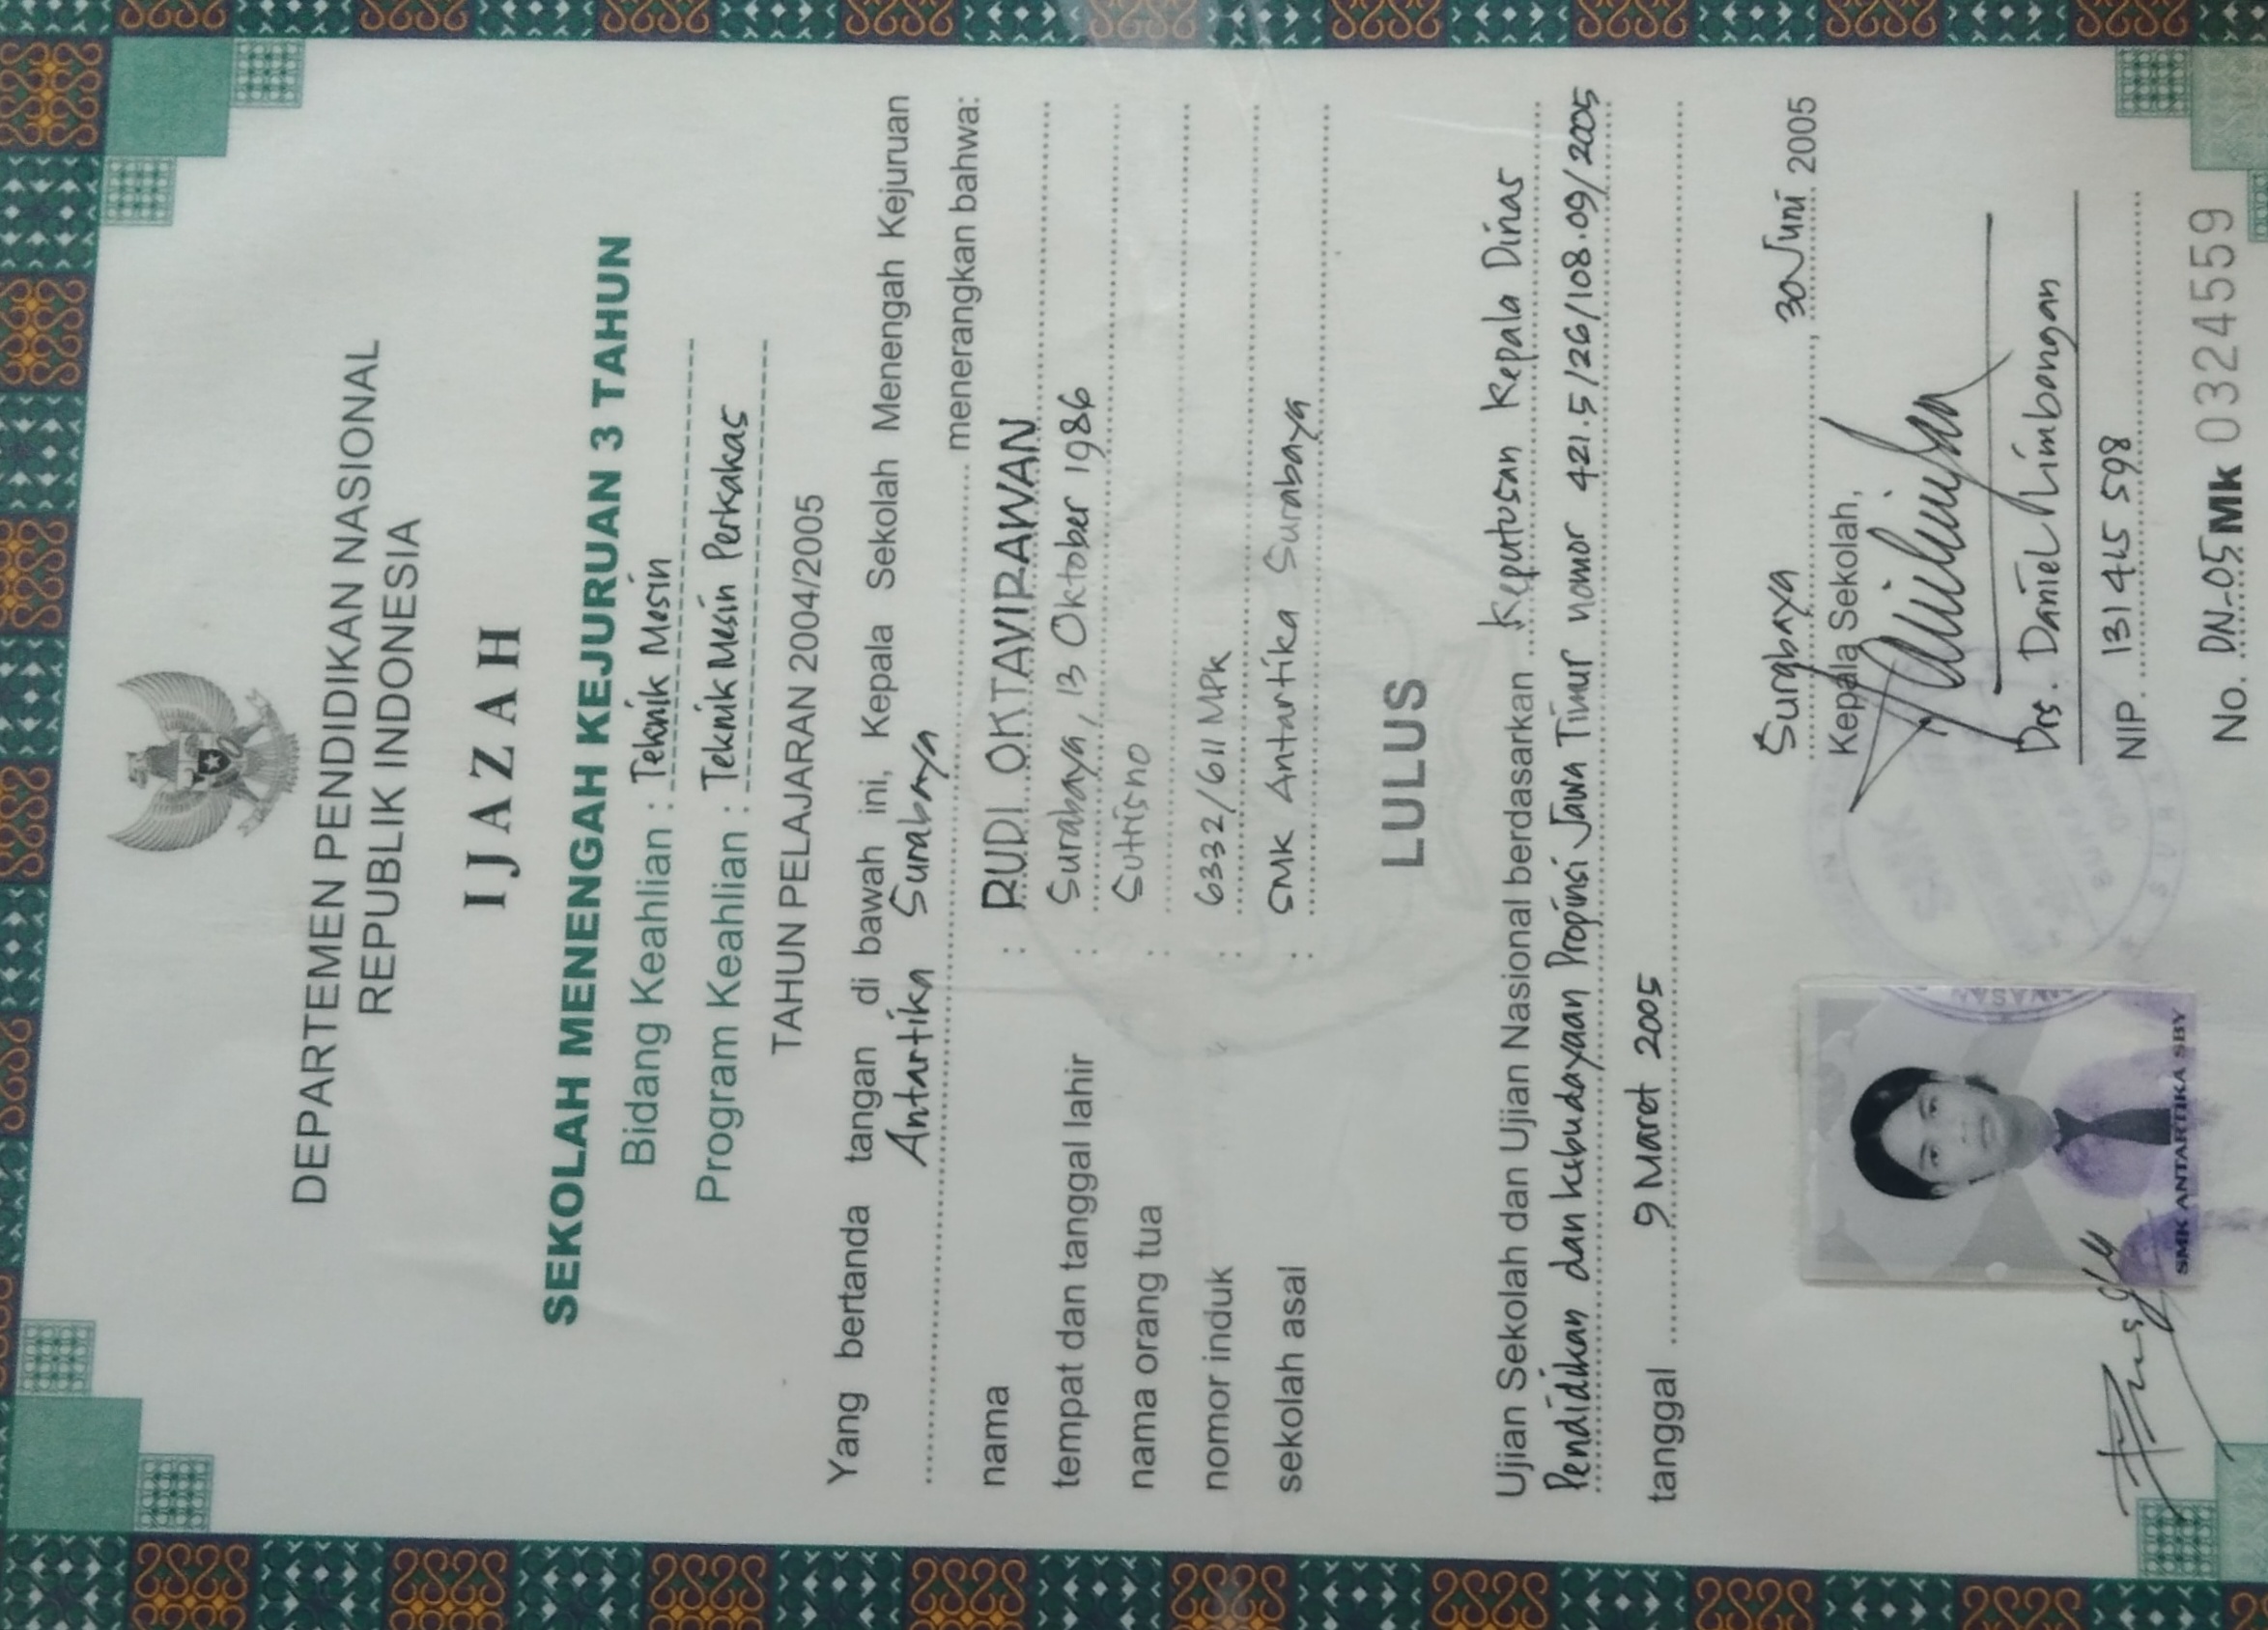 DEPARTEMEN PENDIDIKAN NASIONAL
REPUBLIK INDONESIA
IJAZAH
SEKOLAH MENENGAH KEJURUAN 3 TAHUN
Bidang Keahlian : Teknik Mesin
Program Keahlian : Teknik Mesin Perkakas
TAHUN PELAJARAN 2004/2005
Yang bertanda tangan di bawah ini, Kepala Sekolah Menengah Kejuruan
Antartika Surabaya menerangkan bahwa:
nama : RUDI OKTAVIRAWAN
tempat dan tanggal lahir : Surabaya, 13 Oktober 1986
nama orang tua : Sutrisno
nomor induk : 6332/611 MPK
sekolah asal : SMK Antartika Surabaya
LULUS
Ujian Sekolah dan Ujian Nasional berdasarkan Keputusan Kepala Dinas
Pendidikan dan kebudayaan Propinsi Jawa Timur nomor 421.5/26/108.09/2005
tanggal 9 Maret 2005
Surabaya, 30 Juni 2005
Kepala Sekolah,
Drs. Daniel Limbongan
NIP. 131 445 598
No. DN-05 Mk 0324559
SMK ANTARTIKA SBY